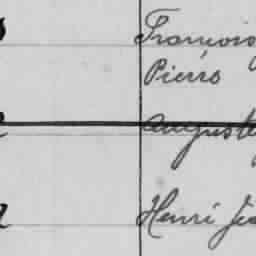 François
Pierre
Auguste
Henri